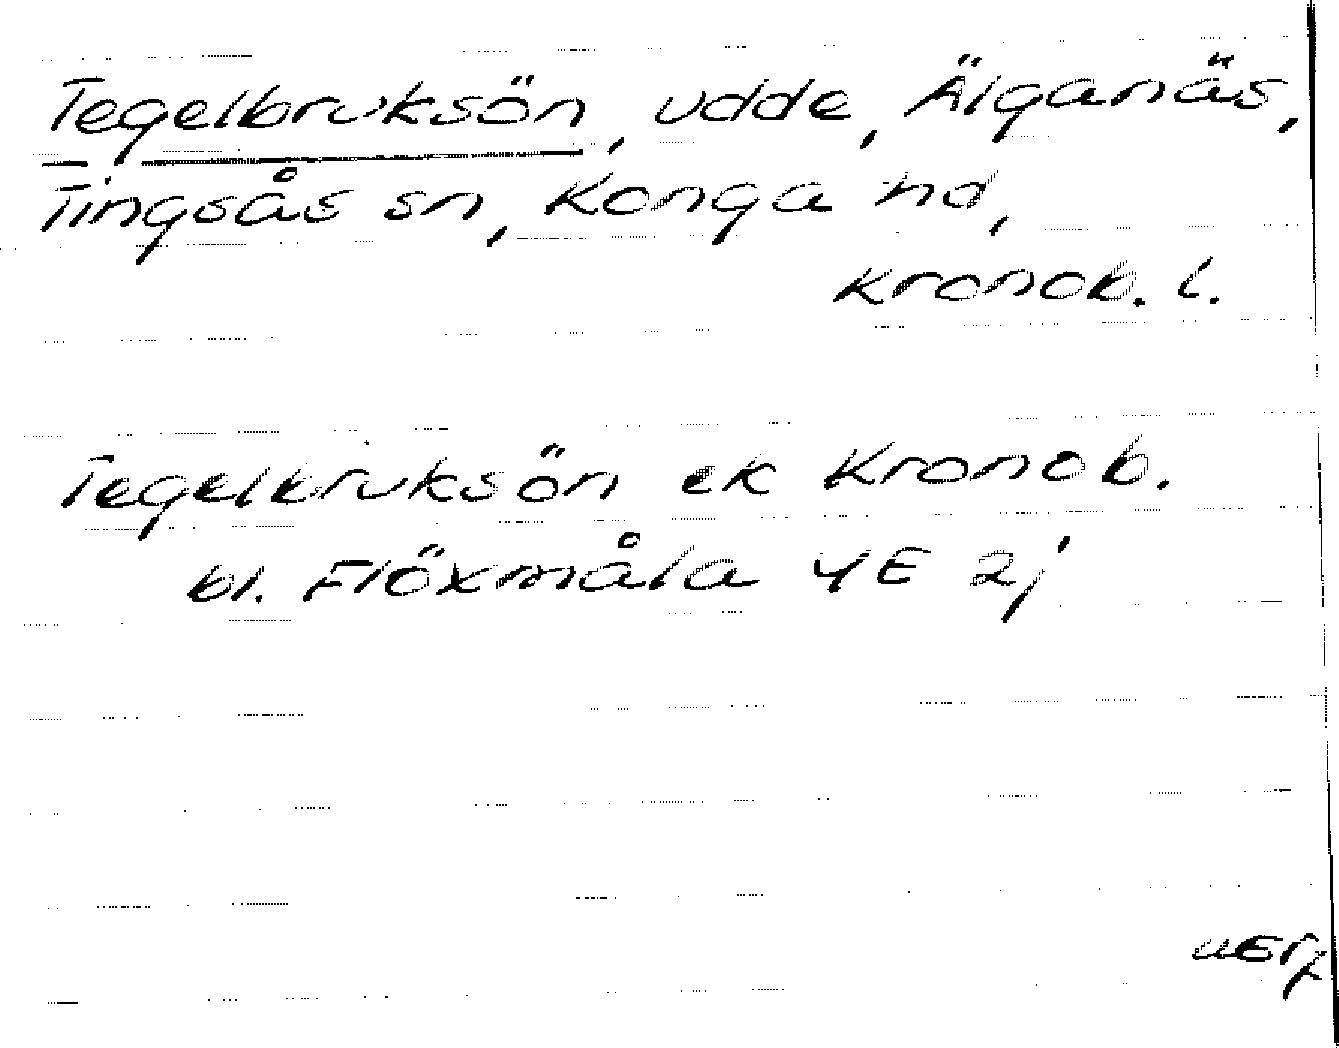 Tegelbruksön, udde, Älganäs,
Tingsås sn, Konga hd,
Kronob. l.
Tegelbruksön ek Kronob.
bl. Flöxmåla 4E 2j